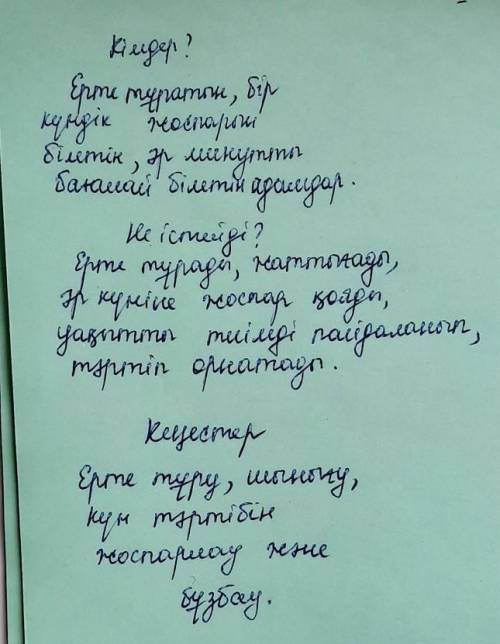 Кімдер?
Ерте тұратын, бір
күндік жоспарын
білетін, әр минутты
бағалай білетін адамдар.
Не істейді?
Ерте тұрады, жаттығады,
әр күніне жоспар қояды,
уақытты тиімді пайдаланып,
тәртіп орнатады.
Кеңестер
Ерте тұру, шынығу,
күн тәртібін
жоспарлау және
бұзбау.